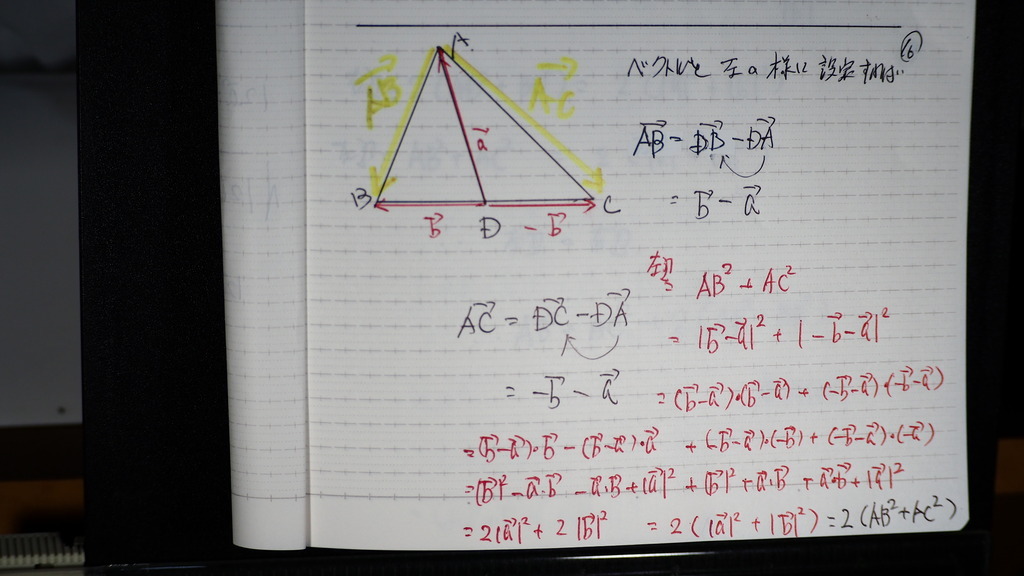 ⑥
ベクトルを 左の様に 設定すれば
A
\vec{AB}
\vec{AC}
\vec{a}
B
D
C
\vec{b}
-\vec{b}
\vec{AB} = \vec{DB} - \vec{DA}
= \vec{b} - \vec{a}
\vec{AC} = \vec{DC} - \vec{DA}
= -\vec{b} - \vec{a}
左辺
AB² + AC²
= |\vec{b}-\vec{a}|² + |-\vec{b}-\vec{a}|²
= (\vec{b}-\vec{a})·(\vec{b}-\vec{a}) + (-\vec{b}-\vec{a})·(-\vec{b}-\vec{a})
= (\vec{b}-\vec{a})·\vec{b} - (\vec{b}-\vec{a})·\vec{a} + (-\vec{b}-\vec{a})·(-\vec{b}) + (-\vec{b}-\vec{a})·(-\vec{a})
= |\vec{b}|² - \vec{a}·\vec{b} - \vec{a}·\vec{b} + |\vec{a}|² + |\vec{b}|² + \vec{a}·\vec{b} + \vec{a}·\vec{b} + |\vec{a}|²
= 2|\vec{a}|² + 2|\vec{b}|² = 2(|\vec{a}|² + |\vec{b}|²) = 2(AB² + AC²)